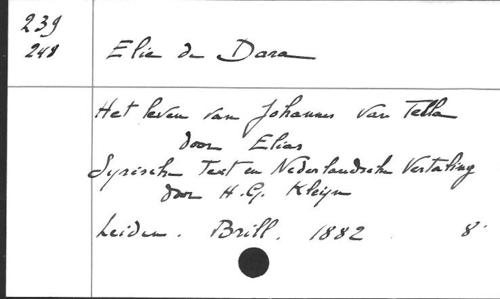 239
248
Elie de Dara
Het leven van Johannes van Tella
door Elias
Syrische Text en Nederlandsche Vertaling
door H. G. Kleyn
Leiden. Brill. 1882. 8°